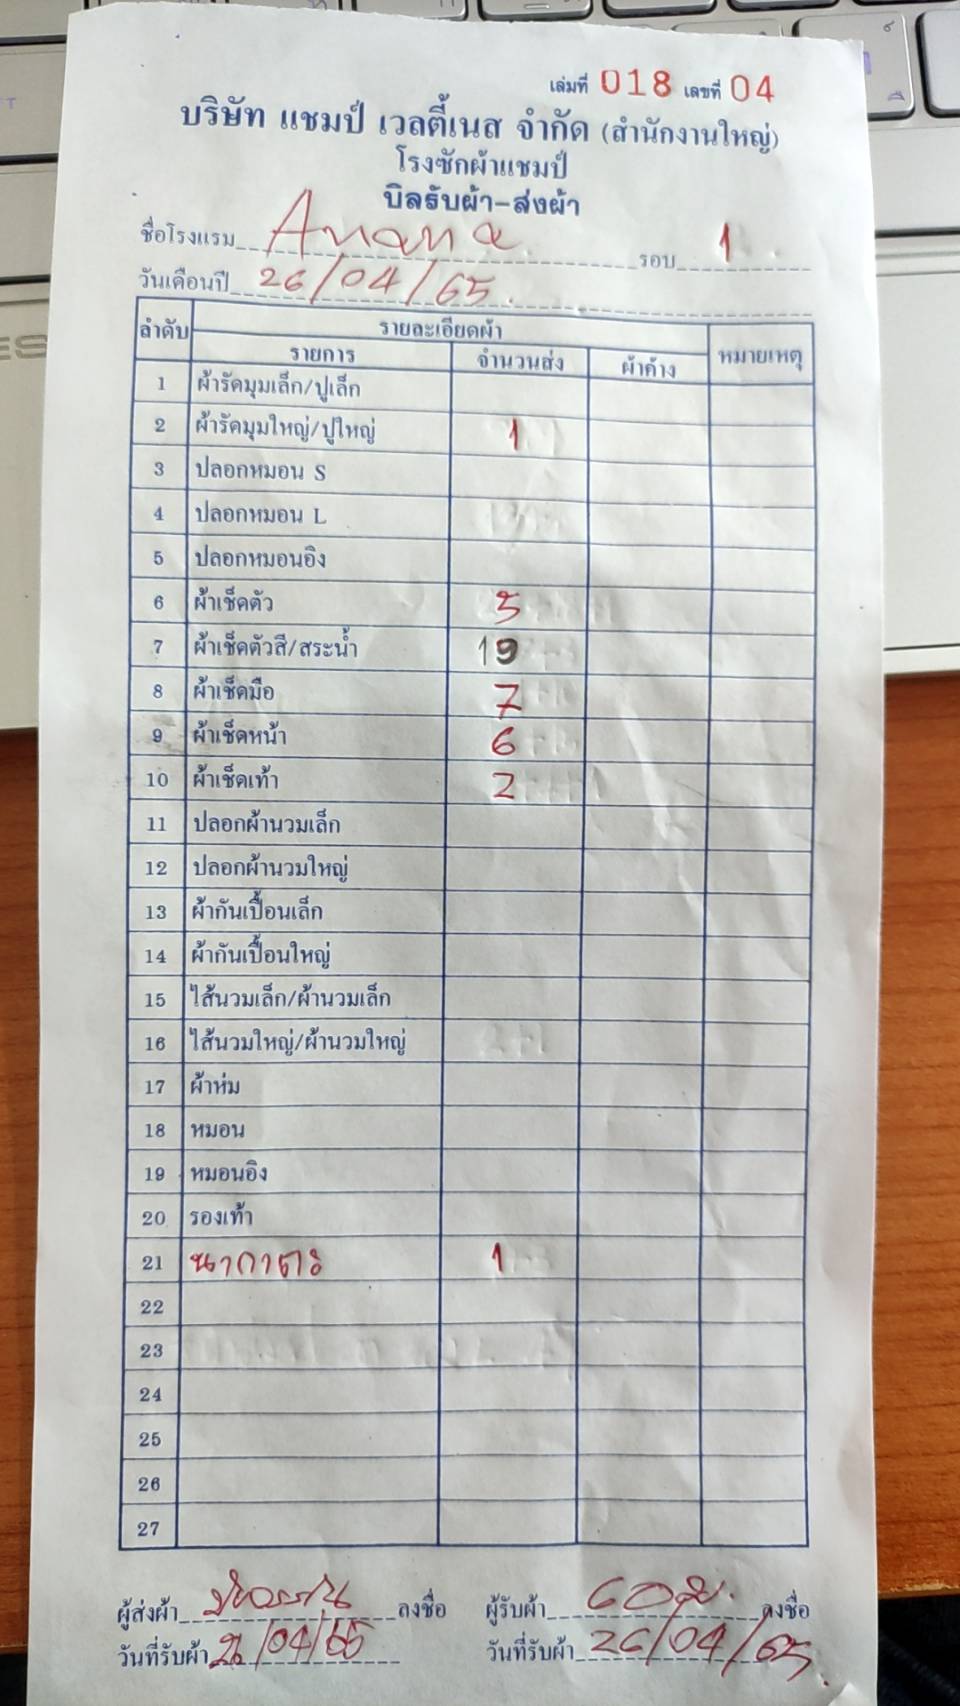 เล่มที่ 018 เลขที่ 04
บริษัท แชมป์ เวลตี้เนส จำกัด (สำนักงานใหญ่)
โรงซักผ้าแชมป์
บิลรับผ้า-ส่งผ้า
ชื่อโรงแรม Anana รอบ 1
วันเดือนปี 26/04/65
ลำดับ รายละเอียดผ้า หมายเหตุ
รายการ จำนวนส่ง ผ้าค้าง
1 ผ้ารัดมุมเล็ก/ปูเล็ก
2 ผ้ารัดมุมใหญ่/ปูใหญ่ 1
3 ปลอกหมอน S
4 ปลอกหมอน L
5 ปลอกหมอนอิง
6 ผ้าเช็ดตัว 5
7 ผ้าเช็ดตัวสี/สระน้ำ 19
8 ผ้าเช็ดมือ 7
9 ผ้าเช็ดหน้า 6
10 ผ้าเช็ดเท้า 2
11 ปลอกผ้านวมเล็ก
12 ปลอกผ้านวมใหญ่
13 ผ้ากันเปื้อนเล็ก
14 ผ้ากันเปื้อนใหญ่
15 ไส้นวมเล็ก/ผ้านวมเล็ก
16 ไส้นวมใหญ่/ผ้านวมใหญ่
17 ผ้าห่ม
18 หมอน
19 หมอนอิง
20 รองเท้า
21 นากาตะ 1
22
23
24
25
26
27
ผู้ส่งผ้า ลงชื่อ ผู้รับผ้า ลงชื่อ
วันที่รับผ้า 26/04/65 วันที่รับผ้า 26/04/65